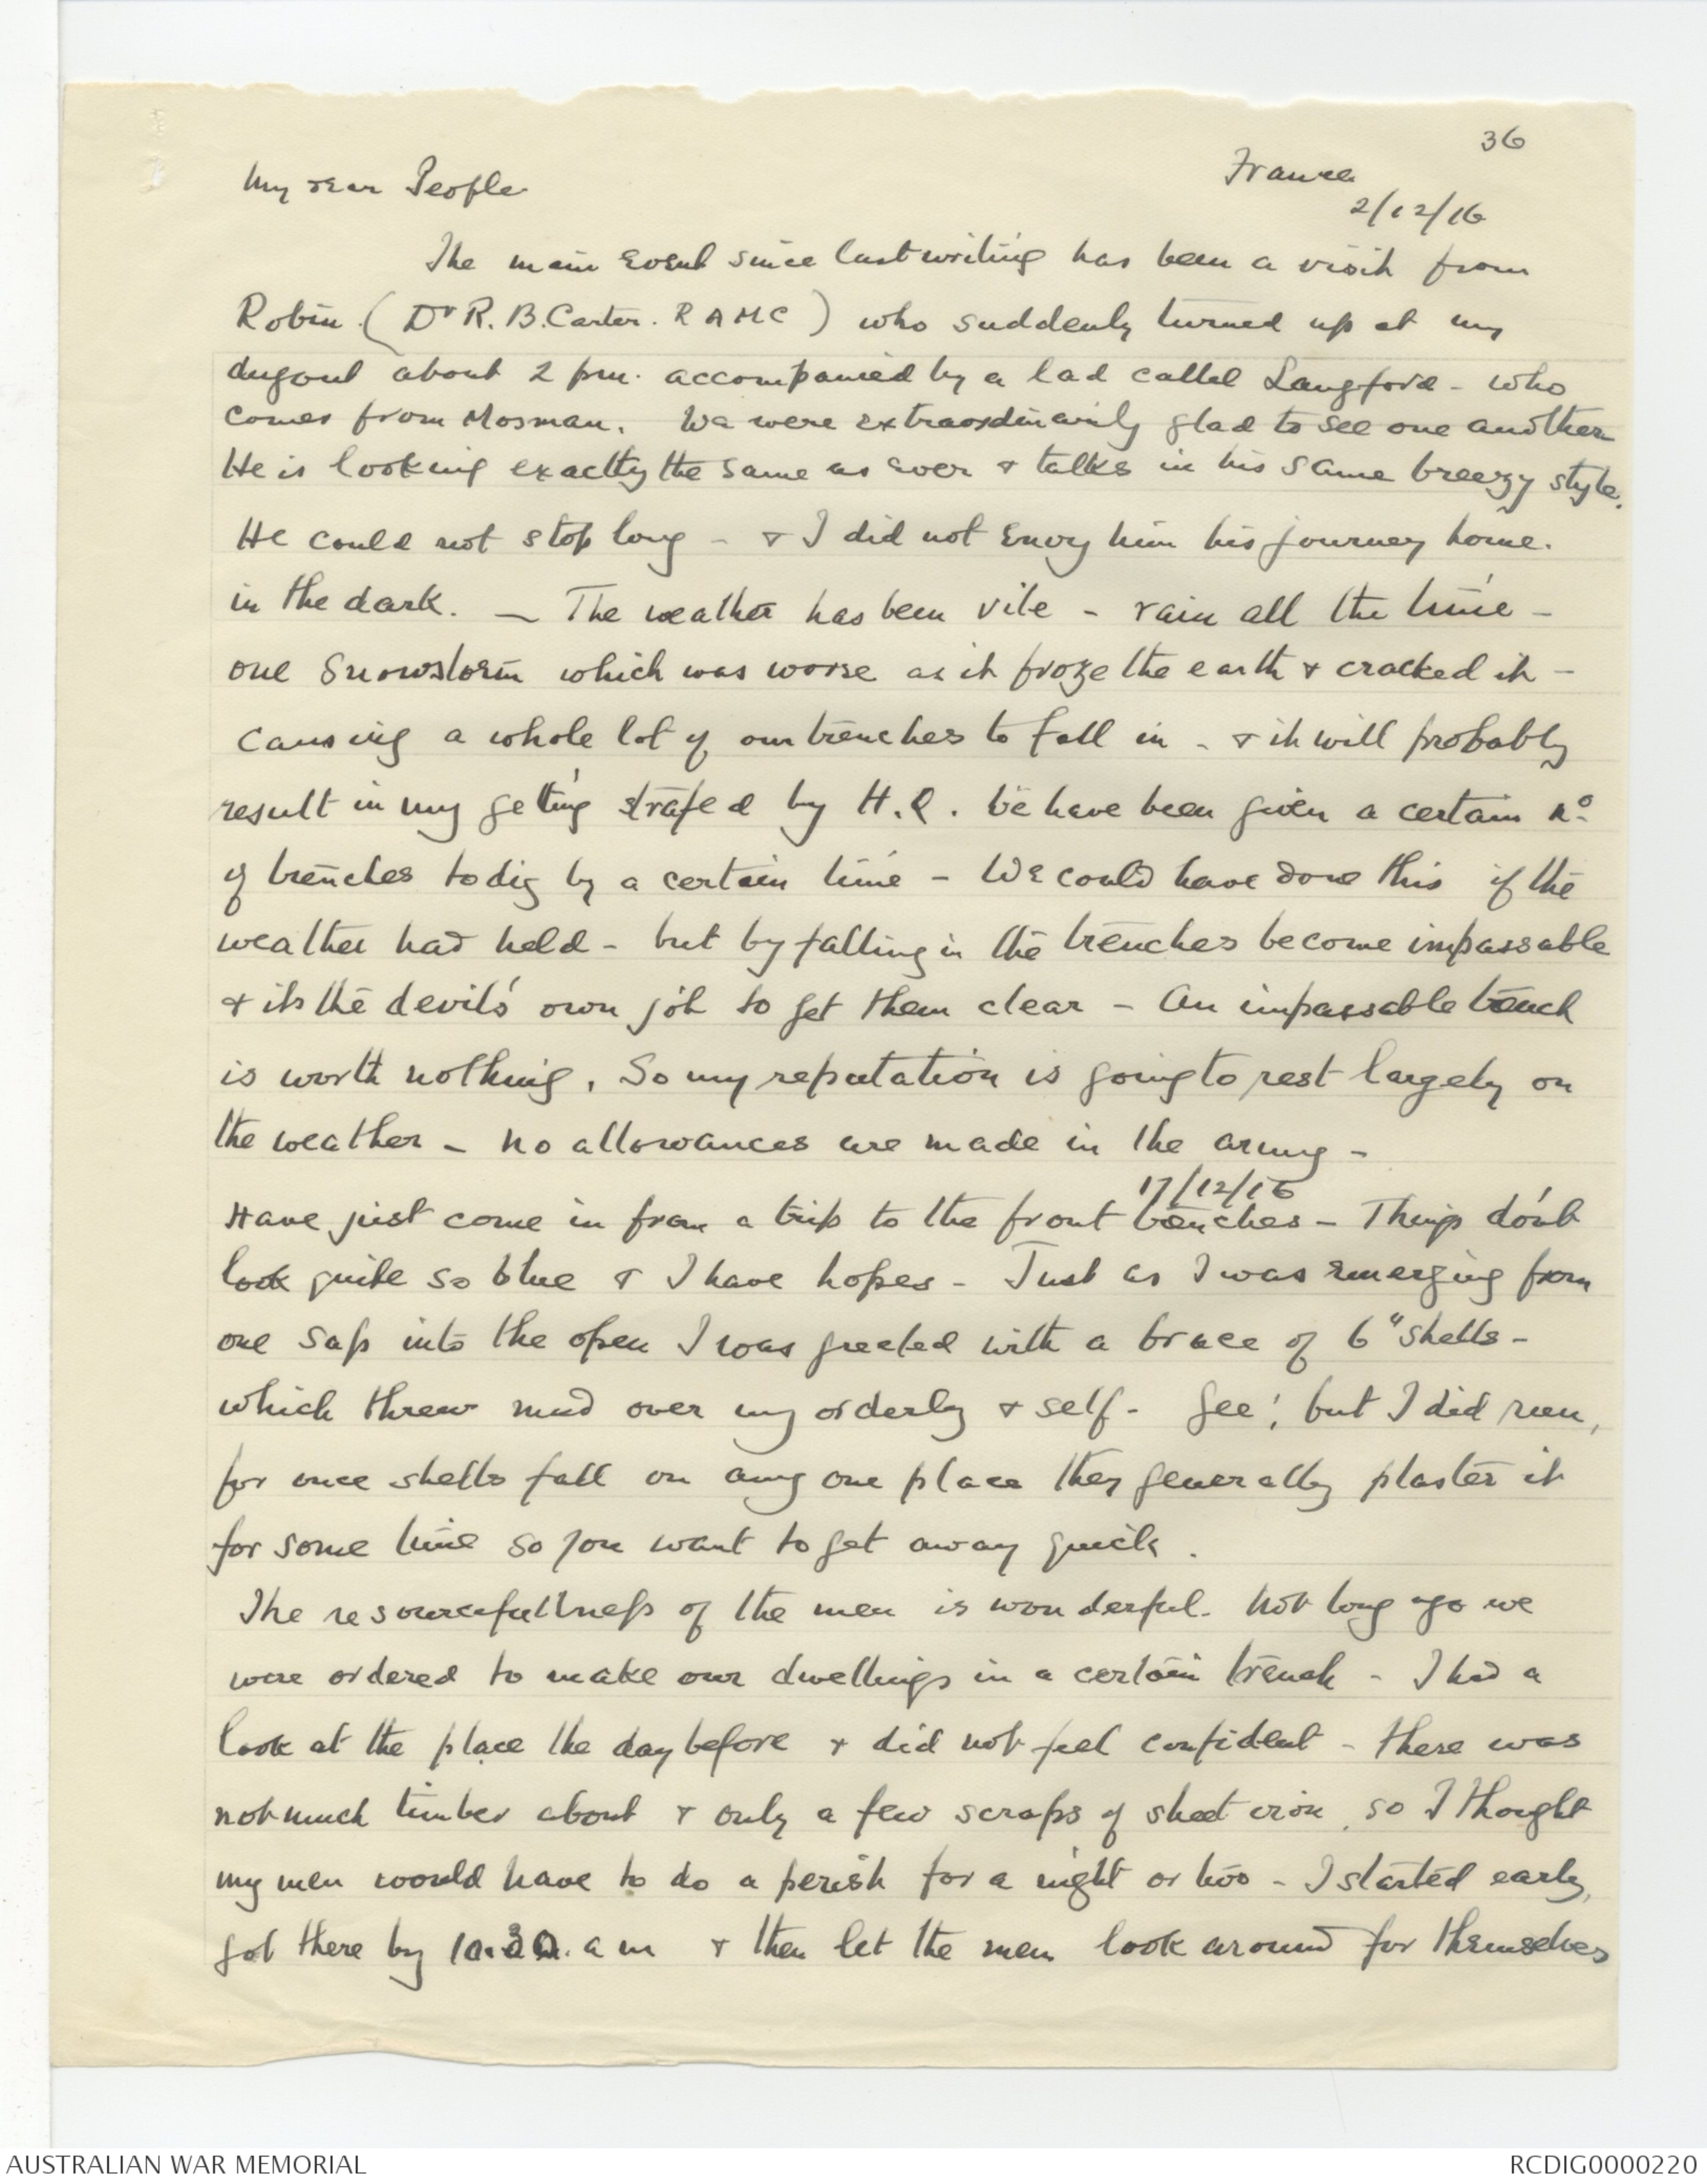 36
France
2/12/16
My dear People
The main event since last writing has been a visit from
Robin (Dr R. B. Carter. RAMC) who suddenly turned up at my
dugout about 2 pm. accompanied by a lad called Langford - who
comes from Mosman. We were extraordinarily glad to see one another
He is looking exactly the same as ever & talks in his same breezy style.
He could not stop long - & I did not envy him his journey home.
in the dark. - The weather has been vile - rain all the time -
one snowstorm which was worse as it froze the earth & cracked it -
causing a whole lot of our trenches to fall in - & it will probably
result in my getting strafed by H.Q. We have been given a certain No
of trenches to dig by a certain time - We could have done this if the
weather had held - but by falling in the trenches become impassable
& its the devil's own job to get them clear - An impassable trench
is worth nothing. So my reputation is going to rest largely on
the weather - no allowances are made in the army -
17/12/16
Have just come in from a trip to the front trenches - Things don't
look quite so blue & I have hopes - Just as I was emerging from
one sap into the open I was greeted with a brace of 6" shells -
which threw mud over my orderly & self - Gee! but I did run,
for once shells fall on any one place they generally plaster it
for some time so you want to get away quick.
The resourcefullness of the men is wonderful. Not long ago we
were ordered to make our dwellings in a certain trench - I had a
look at the place the day before & did not feel confident - there was
not much timber about & only a few scraps of sheet iron, so I thought
my men would have to do a perish for a night or two - I started early,
got there by 10.30. am & then let the men look around for themselves
AUSTRALIAN WAR MEMORIAL
RCDIG0000220